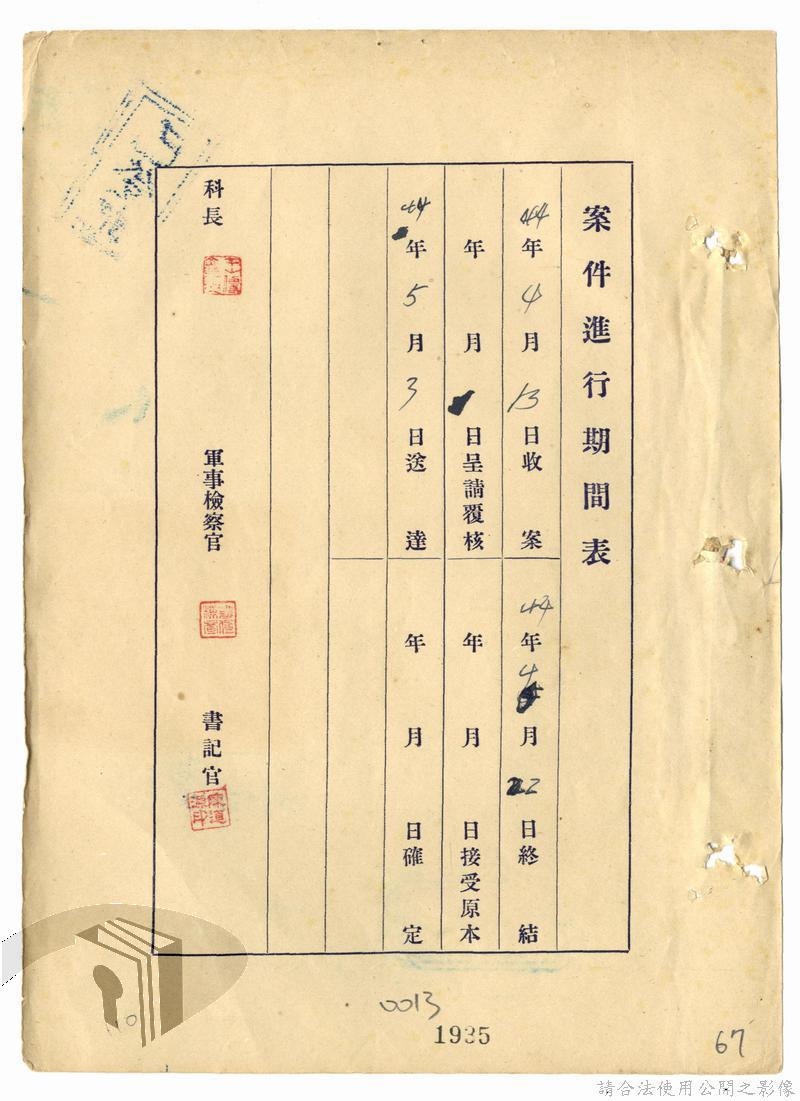 案件進行期間表
44年4月13日收案
44年4月22日終結
年月日呈請覆核
年月日接受原本
44年5月3日送達
年月日確定
科長
軍事檢察官
書記官
0013
1935
67
請合法使用公開之影像